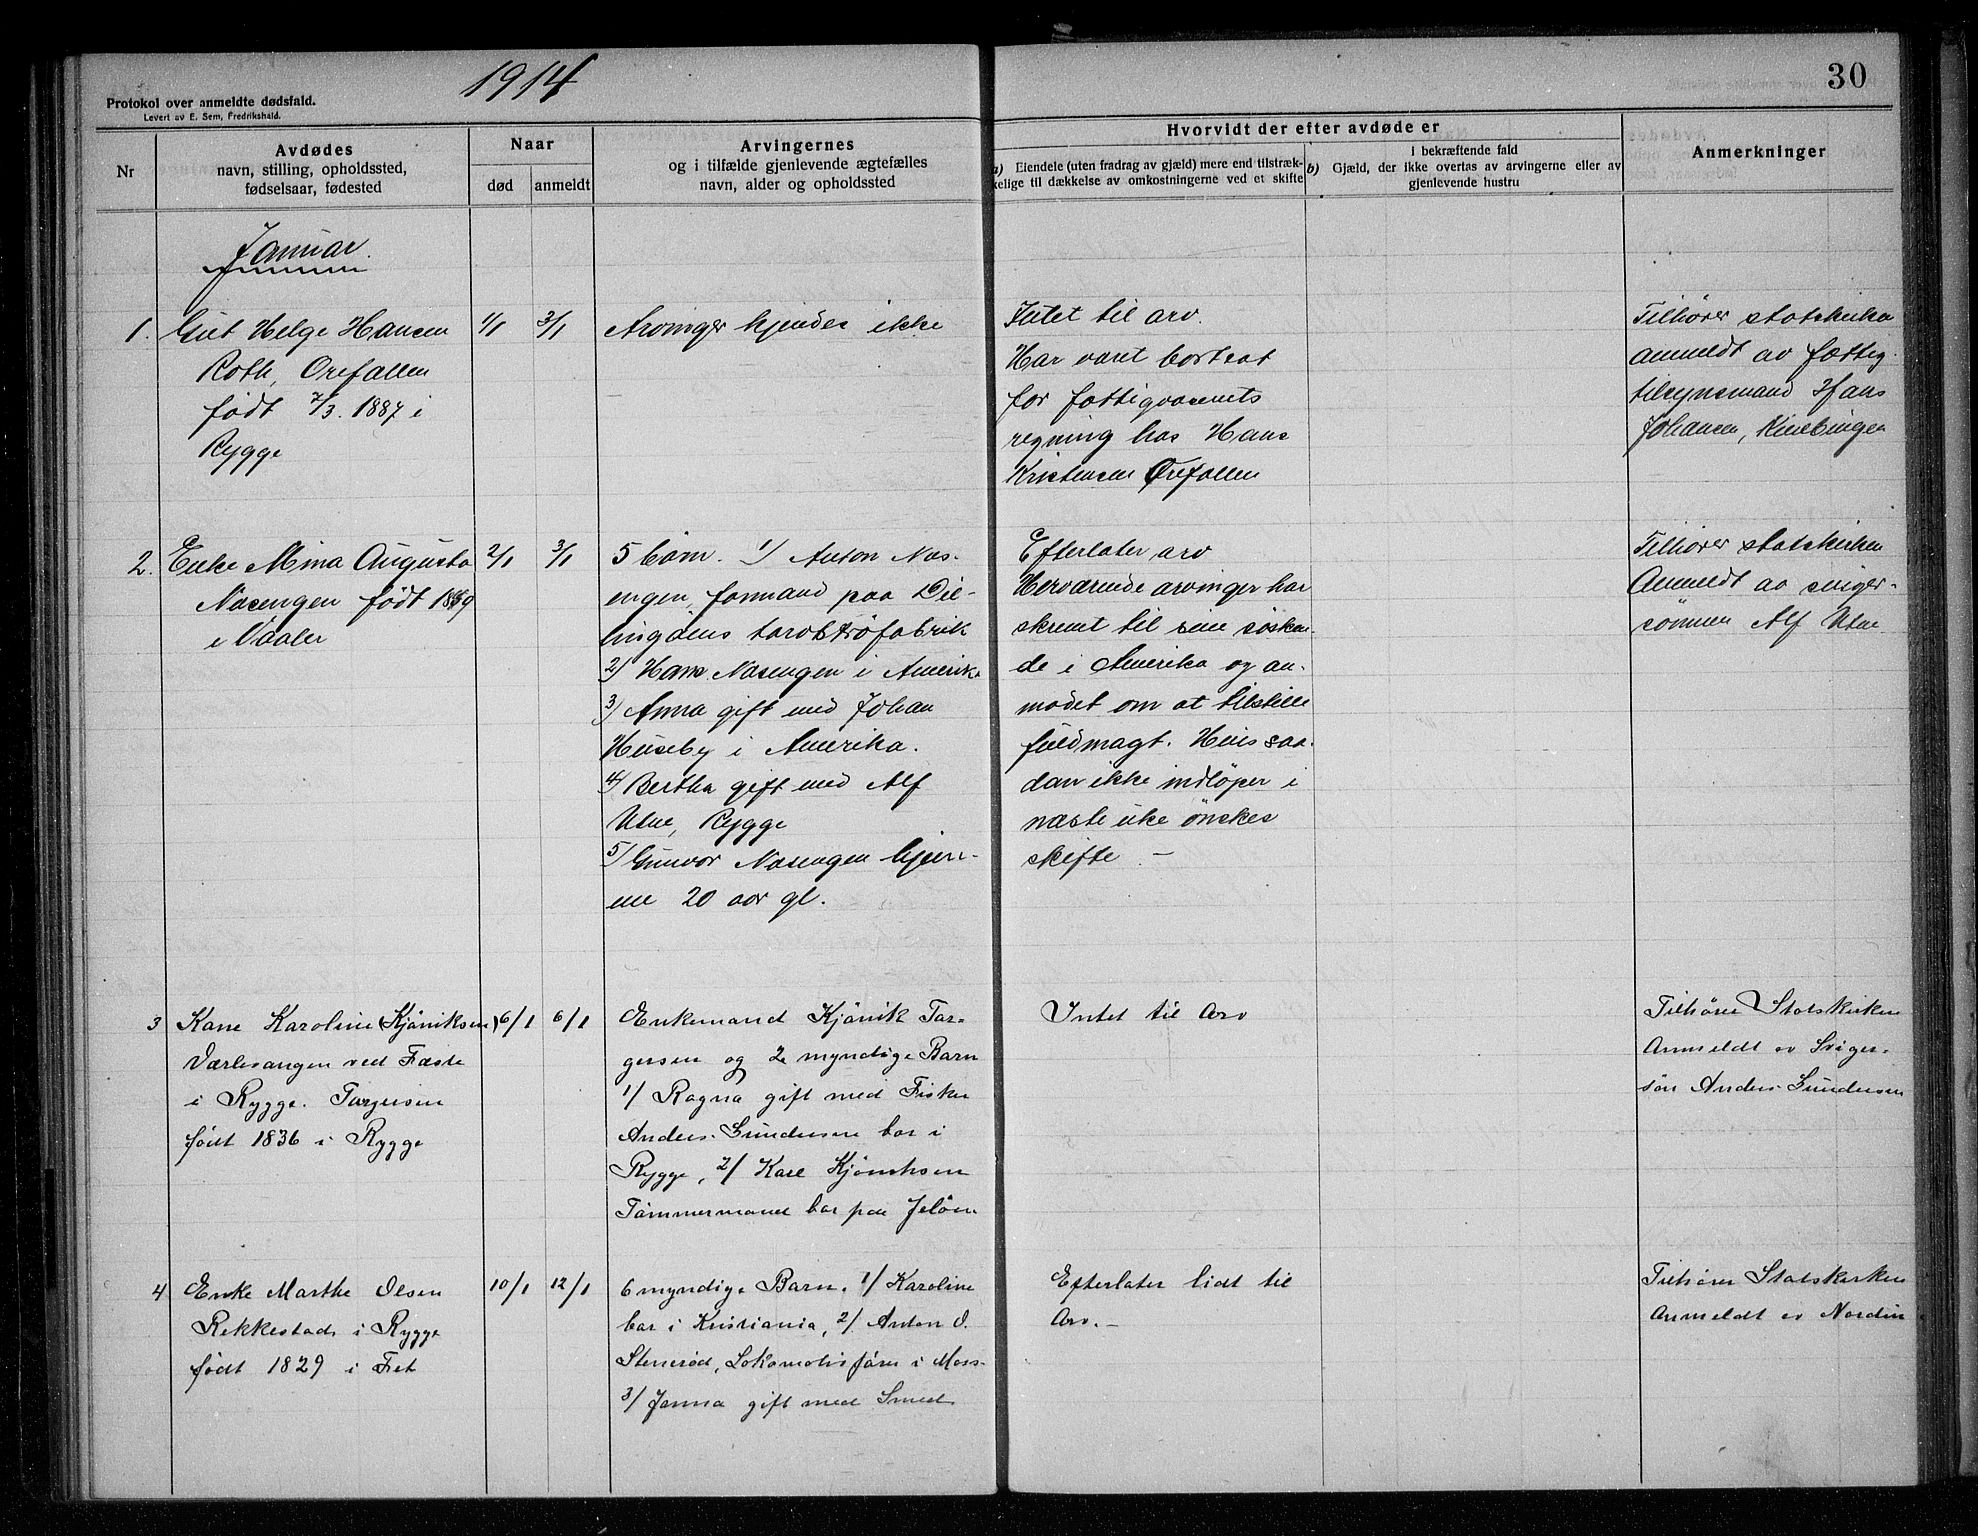 1914
30
Protokol over anmeldte dødsfald.
Levert av E. Sem, Fredrikshald.
Nr
Avdødes
navn, stilling, opholdssted,
fødselsaar, fødested
Naar
død
anmeldt
Arvingernes
og i tilfælde gjenlevende ægtefælles
navn, alder og opholdssted
Hvorvidt der efter avdøde er
a) Eiendele (uten fradrag av gjæld) mere end tilstræk-
kelige til dækkelse av omkostningerne ved et skifte
i bekræftende fald
b) Gjæld, der ikke overtas av arvingerne eller av
gjenlevende hustru
Anmerkninger
Januar.
1.
Gut Helge Hansen
Roth, Orefallen
født 7/3. 1887 i
Rygge
1/1
3/1
Arvinger kjendes ikke
Intet til arv.
Har været bortsat
for fattigvæsenets
regning hos Hans
Kristensen Orefallen
Tilhører statskirken
anmeldt av fattig-
tilsynsmand Hans
Johansen,
2.
Enke Mina Augusta
Nasengen født 1859
i Vaaler
2/1
3/1
5 barn. 1/ Anton Nas-
engen, formand paa Dil-
lingøens torvstrøfabrik
2) Hans Nasengen i Amerika
3) Anna gift med Johan
Huseby i Amerika.
4) Bertha gift med Alf
Utne, Rygge
5) Gunvor Nasengen hjem-
me 20 aar gl.
Efterlater arv
Herværende arvinger har
skrevet til sine søsken-
de i Amerika og an-
modet om at tilstille
fuldmagt. Hvis saa-
dan ikke indløper i
næste uke ønskes
skifte. –
Tilhører statskirken
Anmeldt av sviger-
sønnen Alf Utne
3
Kone Karoline (Kjøniksen)
Værlesangen ved Faste
i Rygge. Torgersen
født 1836 i Rygge
6/1
6/1
Enkemand Kjønik Tor-
gersen og 2 myndige Barn
1/ Ragna gift med Fisker
Anders Gundersen bor i
Rygge, 2/ Kare Kjøniksen
Tømmermand bor paa Jeløen
Intet til Arv
Tilhører Statskirken
Anmeldt av Sviger-
søn Anders Gundersen
4
Enke Marthe Olsen
Rekkestad i Rygge
født 1829 i Fet
10/1
12/1
6 myndige Barn. 1/ Karoline
bor i Kristiania, 2/ Anton O.
Stenerød, Lokomotivfører i Moss
3/ Janna gift med Smed
Efterlater lidt til
Arv. –
Tilhører Statskirken
Anmeldt av Nordin